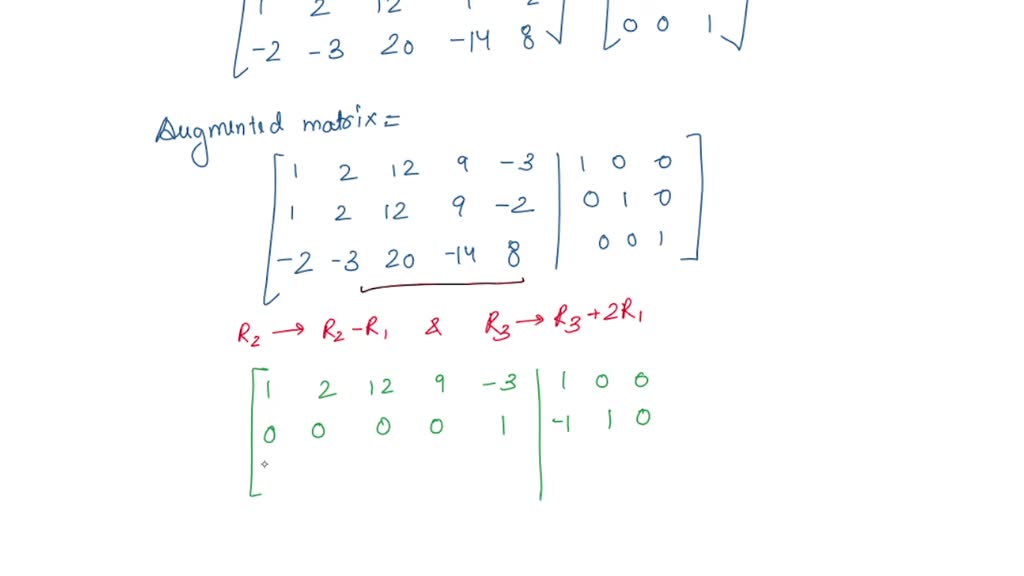 1 2 12
-2 -3 20 -14 8 0 0 1
Augmented matrix =
1 2 12 9 -3 | 1 0 0
1 2 12 9 -2 | 0 1 0
-2 -3 20 -14 8 | 0 0 1
R₂ → R₂ - R₁ & R₃ → R₃ + 2R₁
1 2 12 9 -3 | 1 0 0
0 0 0 0 1 | -1 1 0